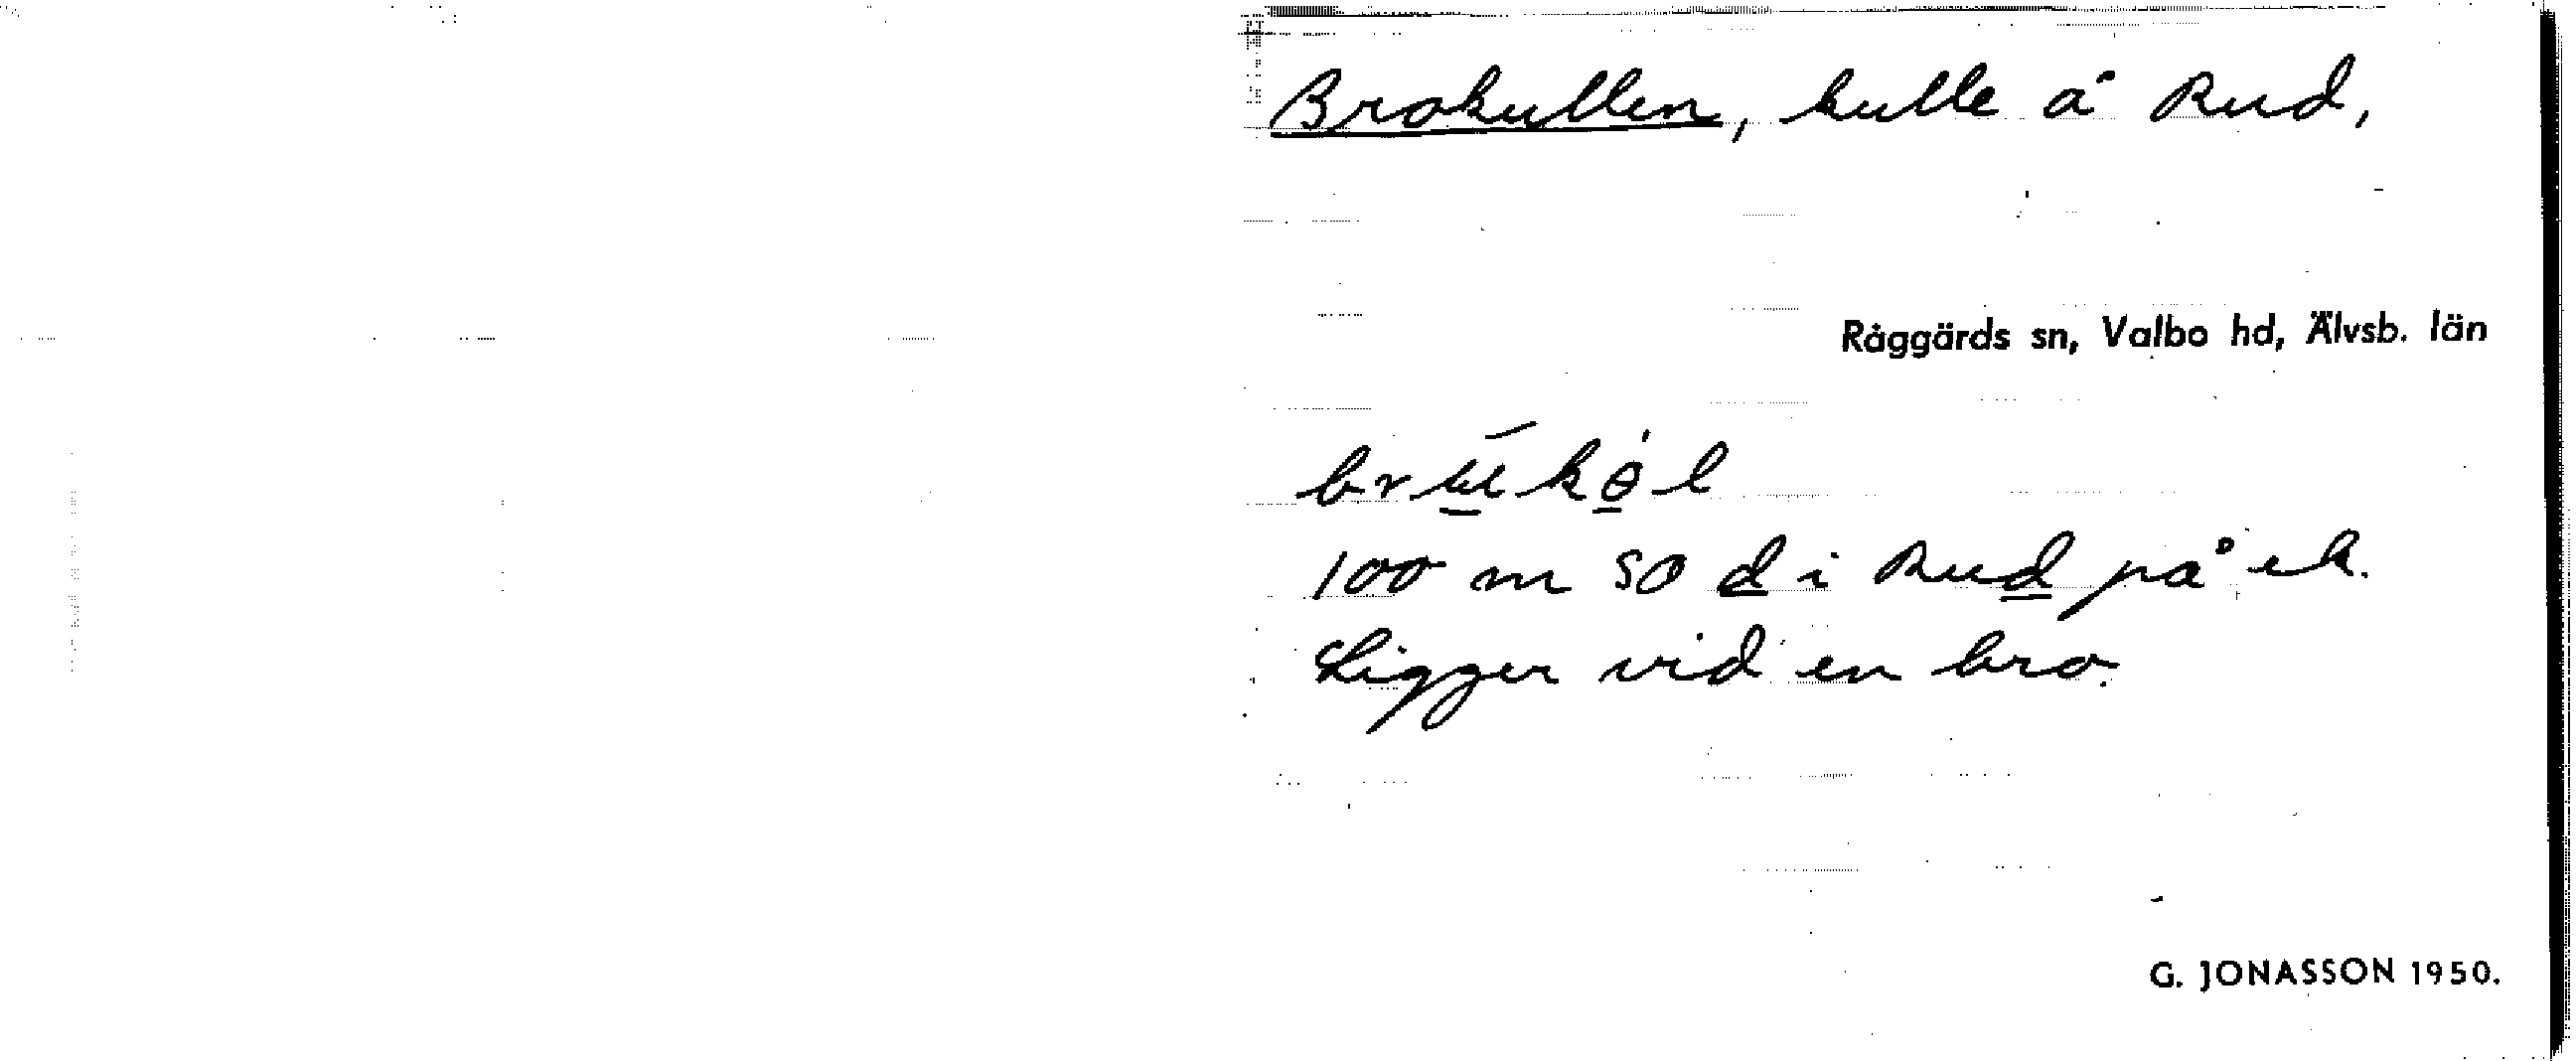 Brokullen, kulle å Rud,
Råggärds sn, Valbo hd, Älvsb. län
100 m SO d i Rud på ek.
Ligger vid en bro.
G. JONASSON 1950.